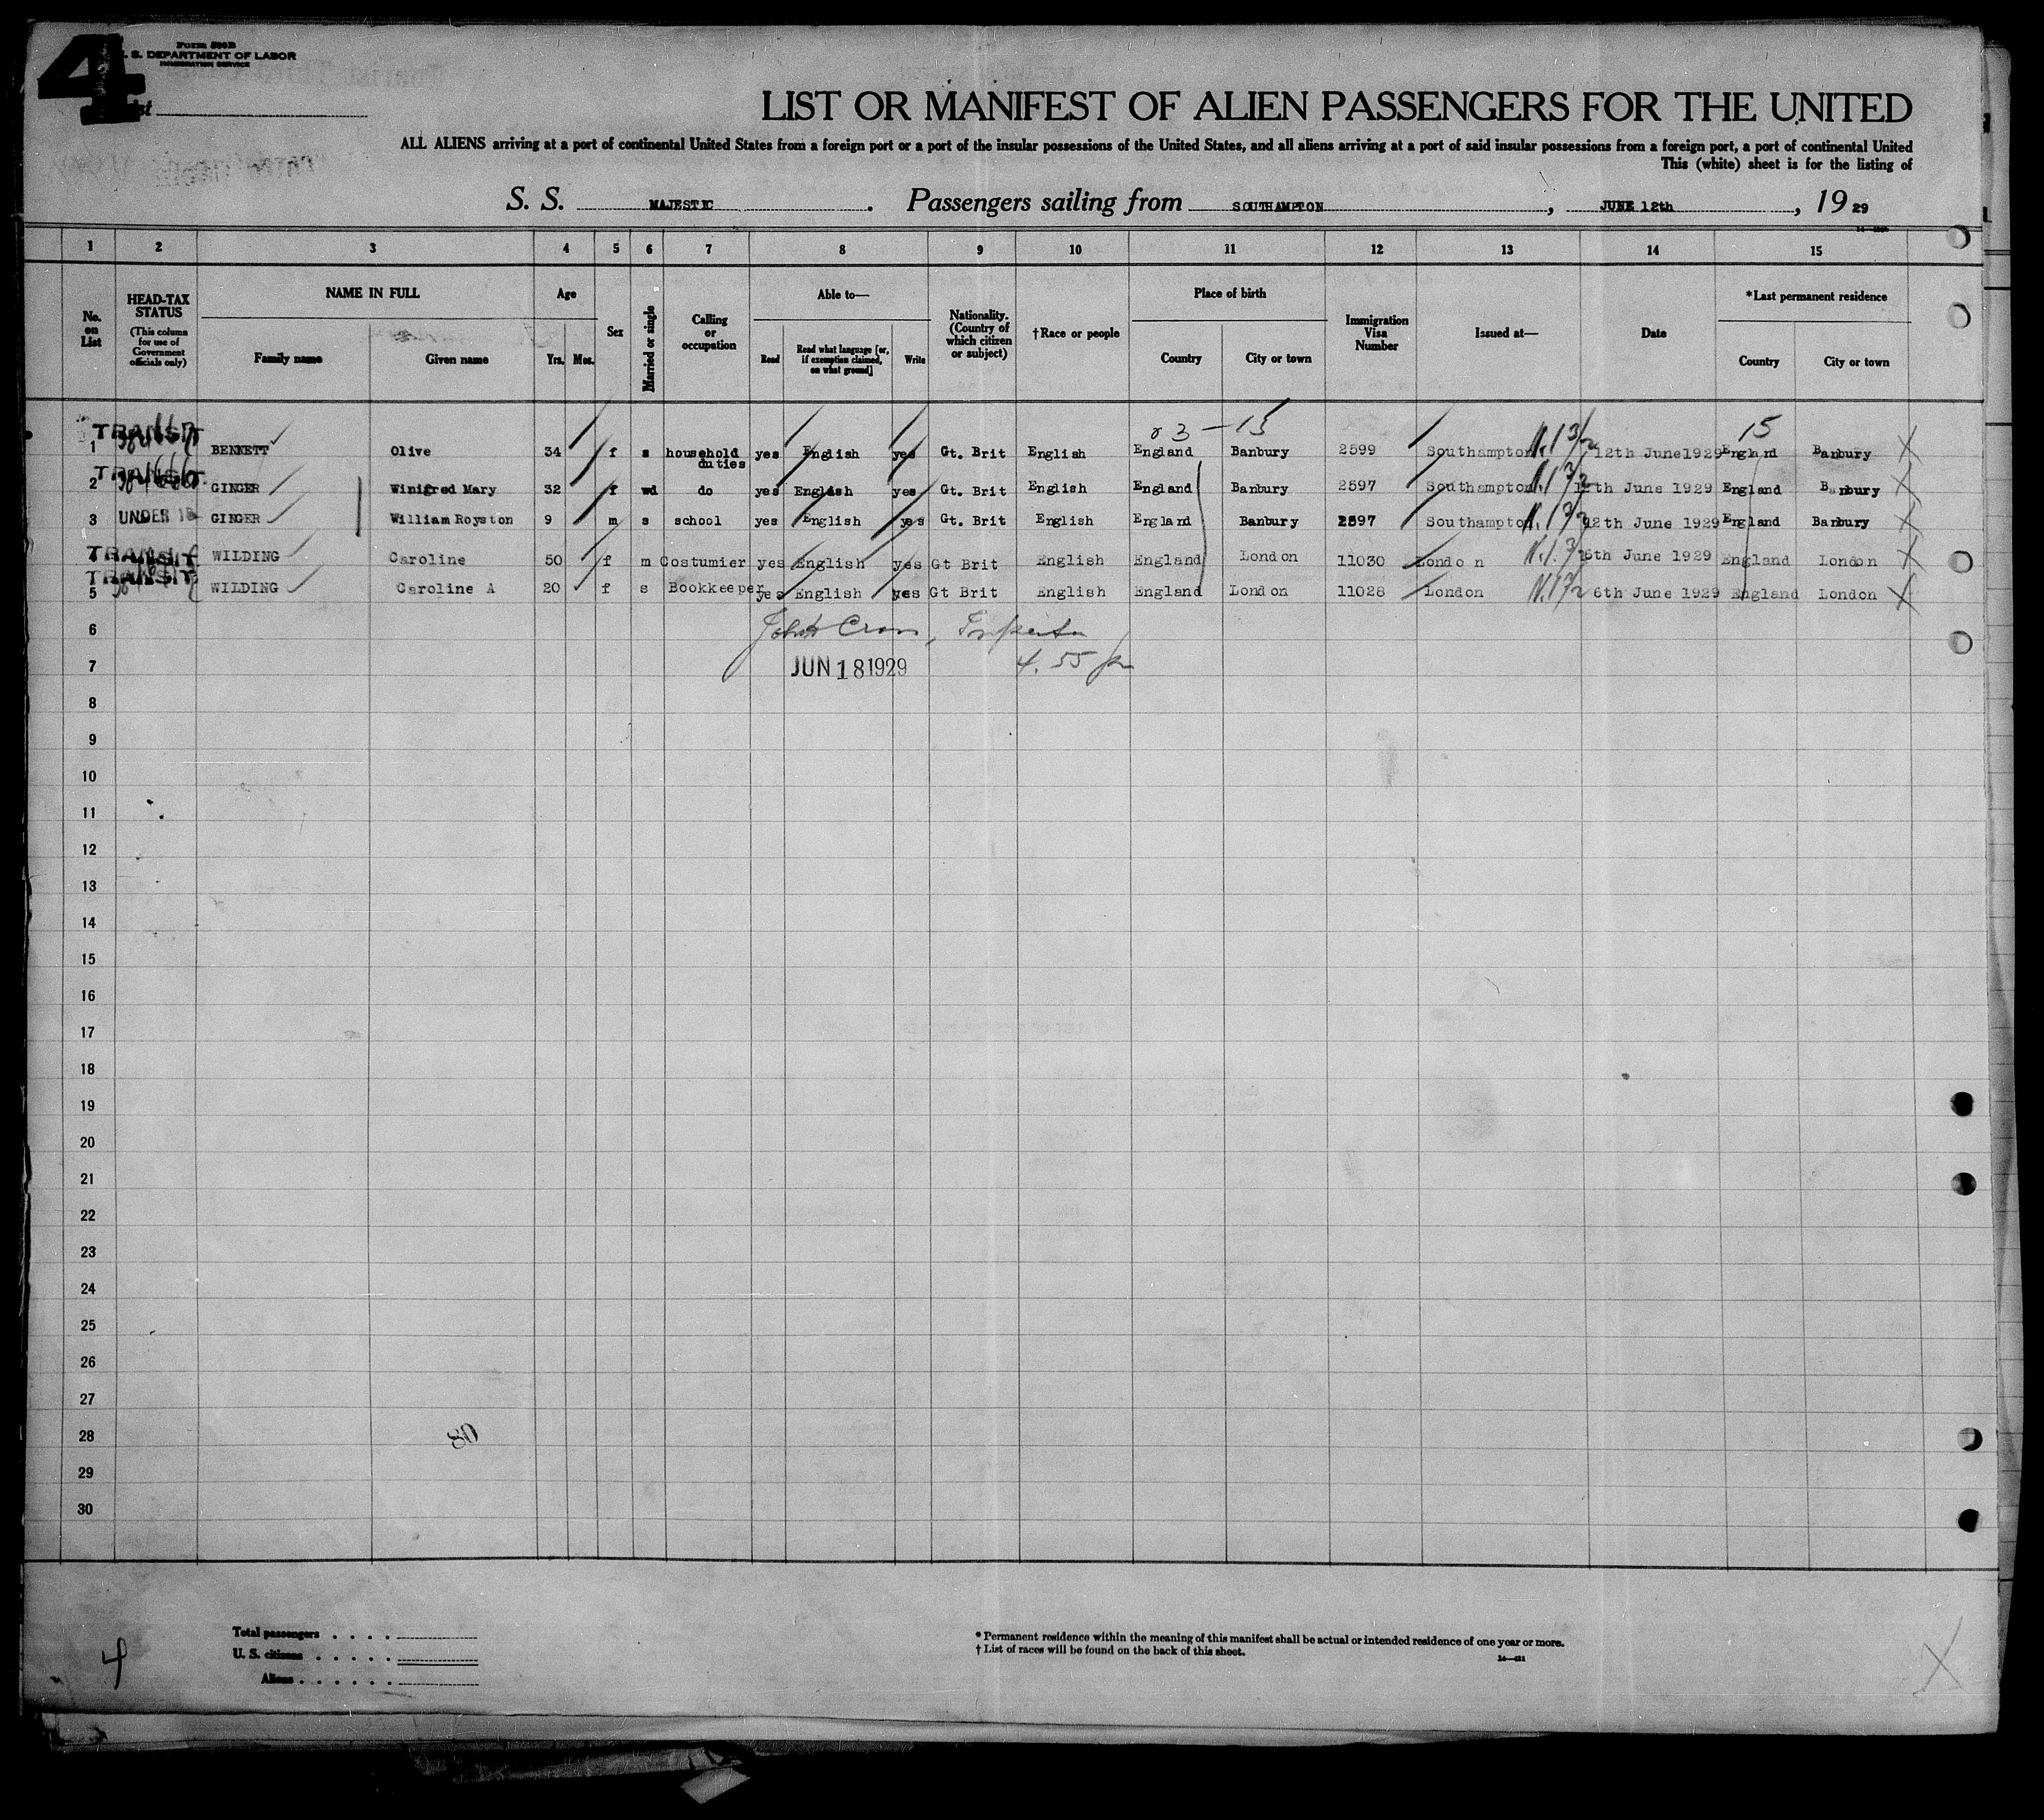 4
Form 500B
U. S. DEPARTMENT OF LABOR
IMMIGRATION SERVICE
List
LIST OR MANIFEST OF ALIEN PASSENGERS FOR THE UNITED
ALL ALIENS arriving at a port of continental United States from a foreign port or a port of the insular possessions of the United States, and all aliens arriving at a port of said insular possessions from a foreign port, a port of continental United
This (white) sheet is for the listing of
S. S. MAJESTIC. Passengers sailing from SOUTHAMPTON, JUNE 12th, 1929
1 2 3 4 5 6 7 8 9 10 11 12 13 14 15
No. on List
HEAD-TAX STATUS (This column for use of Government officials only)
NAME IN FULL
Family name Given name
Age
Yrs. Mos.
Sex
Married or single
Calling or occupation
Able to—
Read Read what language [or, if exemption claimed, on what ground] Write
Nationality. (Country of which citizen or subject)
†Race or people
Place of birth
Country City or town
Immigration Visa Number
Issued at—
Date
*Last permanent residence
Country City or town
3 — 15 15
TRANSIT
1 BENNETT Olive 34 f s household duties yes English yes Gt. Brit English England Banbury 2599 Southampton 12th June1929 England Banbury
TRANSIT
2 GINGER Winifred Mary 32 f wd do yes English yes Gt. Brit English England Banbury 2597 Southampton 12th June 1929 England Banbury
3 UNDER 16 GINGER William Royston 9 m s school yes English yes Gt. Brit English England Banbury 2597 Southampton 12th June 1929 England Banbury
TRANSIT WILDING Caroline 50 f m Costumier yes English yes Gt Brit English England London 11030 London 6th June 1929 England London
TRANSIT
5 WILDING Caroline A 20 f s Bookkeeper yes English yes Gt Brit English England London 11028 London 6th June 1929 England London
6
7 JUN 18 1929 4.55 pm
8
9
10
11
12
13
14
15
16
17
18
19
20
21
22
23
24
25
26
27
28
29
30
Total passengers . . . .
U. S. citizens . . . . .
Aliens . . . . . .
* Permanent residence within the meaning of this manifest shall be actual or intended residence of one year or more.
† List of races will be found on the back of this sheet.
4